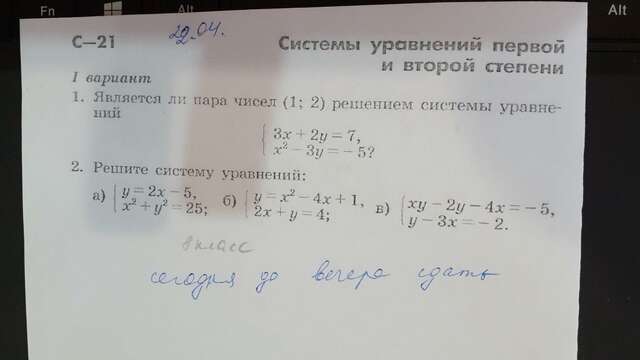 Fn Alt Alt
С—21 22.04. Системы уравнений первой
и второй степени
I вариант
1. Является ли пара чисел (1; 2) решением системы уравне-
ний
{ 3x + 2y = 7,
x² − 3y = − 5?
2. Решите систему уравнений:
а) { y = 2x − 5, б) { y = x² − 4x + 1, в) { xy − 2y − 4x = − 5,
x² + y² = 25; 2x + y = 4; y − 3x = − 2.
8 класс
сегодня до вечера сдать